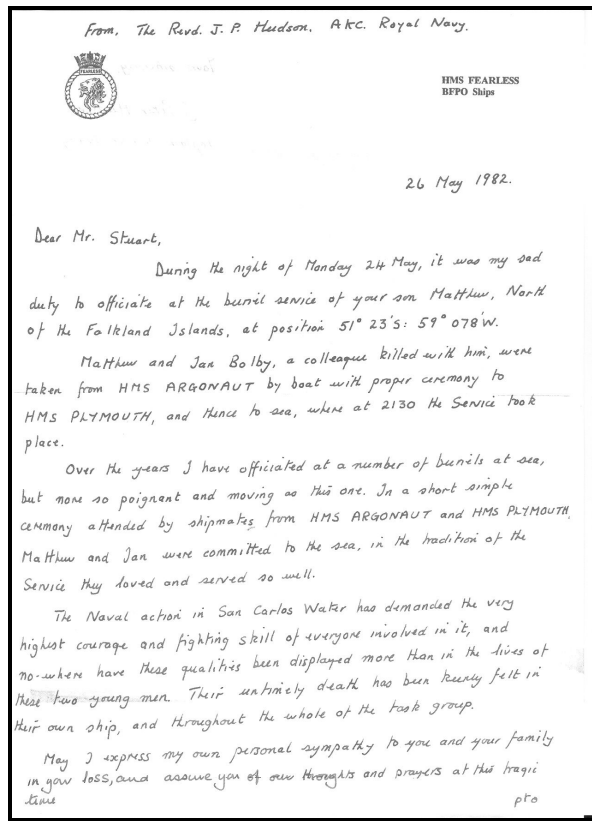 From, The Revd. J. P. Hudson. AKC. Royal Navy.
FEARLESS
HMS FEARLESS
BFPO Ships
26 May 1982.
Dear Mr. Stuart,
During the night of Monday 24 May, it was my sad
duty to officiate at the burial service of your son Matthew, North
of the Falkland Islands, at position 51° 23's: 59° 078'W.
Matthew and Ian Bolby, a colleague killed with him, were
taken from HMS ARGONAUT by boat with proper ceremony to
HMS PLYMOUTH, and thence to sea, where at 2130 the Service took
place.
Over the years I have officiated at a number of burials at sea,
but none so poignant and moving as this one. In a short simple
ceremony attended by shipmates from HMS ARGONAUT and HMS PLYMOUTH,
Matthew and Ian were committed to the sea, in the tradition of the
Service they loved and served so well.
The Naval action in San Carlos Water has demanded the very
highest courage and fighting skill of everyone involved in it, and
no-where have these qualities been displayed more than in the lives of
these two young men. Their untimely death has been keenly felt in
their own ship, and throughout the whole of the task group.
May I express my own personal sympathy to you and your family
in your loss, and assure you of our thoughts and prayers at this tragic
time
pto